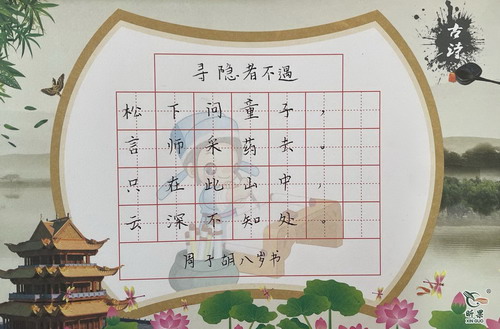 古诗
寻隐者不遇
松下问童子，
言师采药去。
只在此山中，
云深不知处。
周于胡八岁书
昕果
XIN GUO